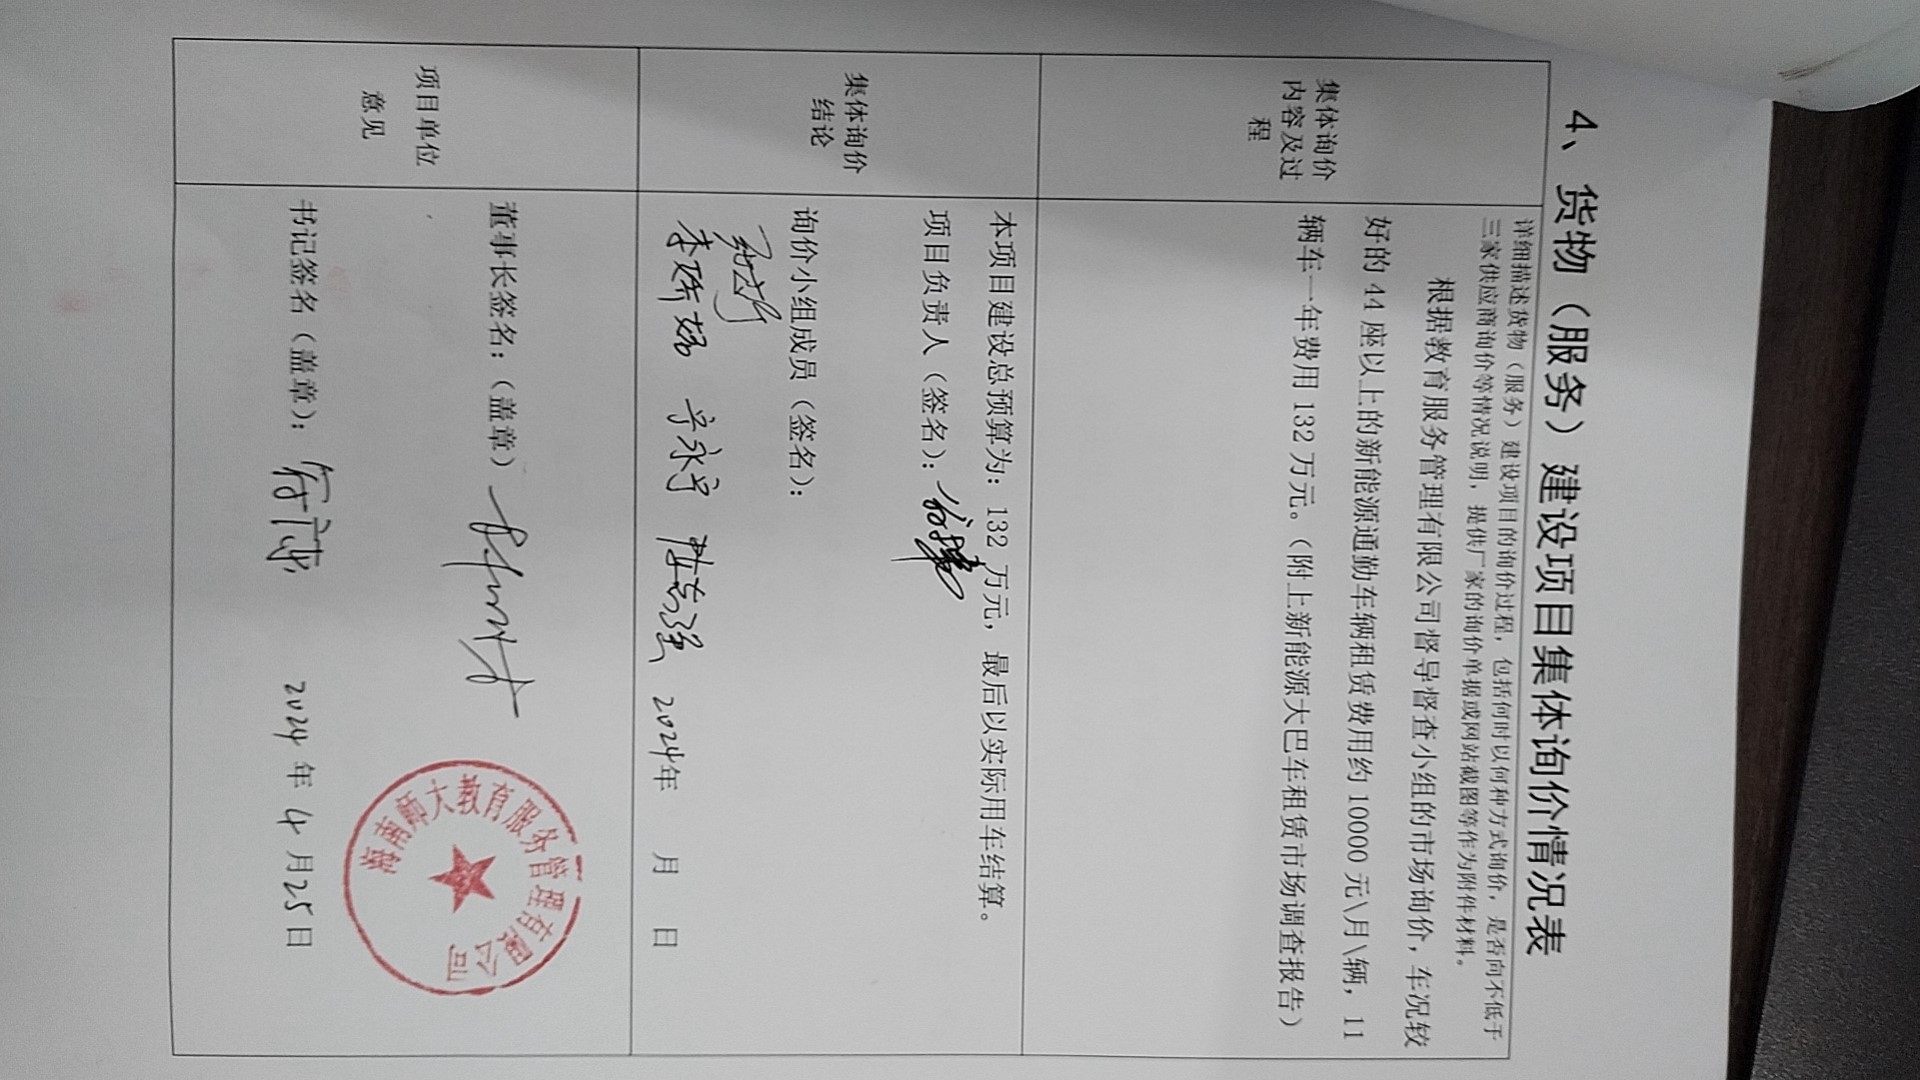 4、货物（服务）建设项目集体询价情况表
集体询价
内容及过
程
详细描述货物（服务）建设项目的询价过程，包括何时以何种方式询价，是否向不低于
三家供应商询价等情况说明，提供厂家的询价单据或网站截图等作为附件材料。
根据教育服务管理有限公司督导督查小组的市场询价，车况较
好的 44 座以上的新能源通勤车车辆租赁费用约 10000 元\月\辆，11
辆车一年费用 132 万元。（附上新能源大巴车租赁市场调查报告）
集体询价
结论
本项目建设总预算为：132 万元，最后以实际用车结算。
项目负责人（签名）：
询价小组成员（签名）：
2024年 月 日
项目单位
意见
董事长签名：（盖章）
书记签名（盖章）：
2024 年 4 月 25 日
海南师大教育服务管理有限公司